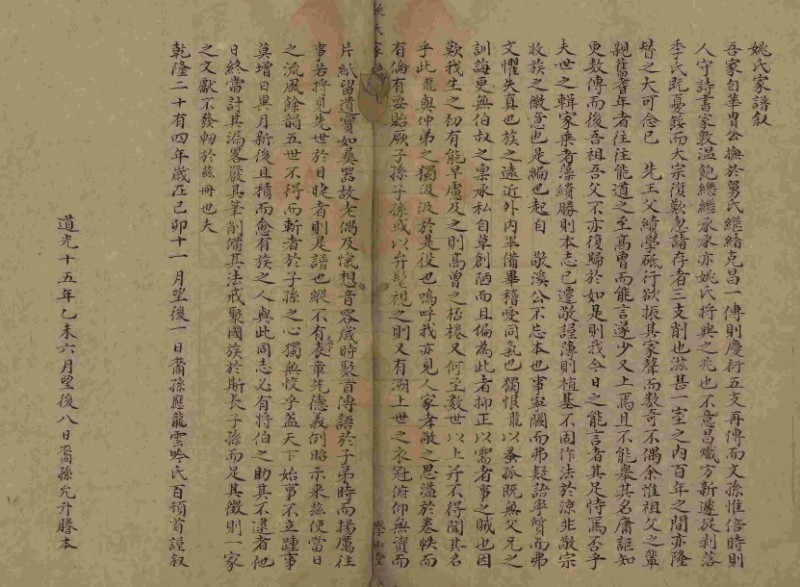 姚氏家譜叙
吾家自華胄公撫於舅氏繼緒克昌一傳則慶衍五支再傳而文孫惟倍時則
人守詩書家敦温飽繼繼承承亦姚氏將興之兆也不意昌熾方新遽從剥落
季氏既憂餒而大宗復歎忽諸存者三支削也滋甚一室之内百年之間亦隆
替之大可念已 先王父績學砥行欲振其家聲而數奇不偶余惟祖父之輩
親舊耆年者往往能道之至高曾而能言遂少又上焉且不能舉其名庸詎知
更数傳而後吾祖吾父不亦復歸於如是則我今日之能言者其足恃焉否乎
夫世之輯家乗者藻繢勝則本志已遷敬謹薄則植基不固作法於凉非敬宗
收族之微意也是編也起自 敬溪公不忘本也事寧闕而弗疑語寧質而弗
文懼失真也族之遠近外内畢備畢稽愛同氣也獨恨龍以蚤孤既無父兄之
訓誨更無伯叔之禀承私自草創陋而且偏為此者抑正以需者事之賊也因
歎我生之初有能早慮及之則高曾之桮棬又何至数世以上并不得聞其名
乎此龍與仲弟之獨汲汲於是役也嗚呼我亦見人家孝敬之思溢於卷帙而
有倫有要貽厥子孫子孫或以弁髦視之則又有溯上世之衣冠俯仰無資而
片紙留遺寶如彝器故老偶及愾想音容歲時聚首傳語於子弟時而揚厲往
事若將見先世於目睫者則是譜也縱不有表章先德義例昭示来兹使當日
之流風餘韻五世不得而斬者於子孫之心獨無恔乎盖天下始事不立踵事
莫增日異月新後且積而愈有族之人與此同志必有將伯之助其不逮者他
日終當計其漏畧嚴其筆削備其法戒聚國族於斯長子孫而足其徵則一家
之文獻不發軔於兹冊也夫
乾隆二十有四年歲在己卯十一月望後一日裔孫應龍雲吟氏百頓首謹叙
道光十五年乙未六月望後八日裔孫允升謄本